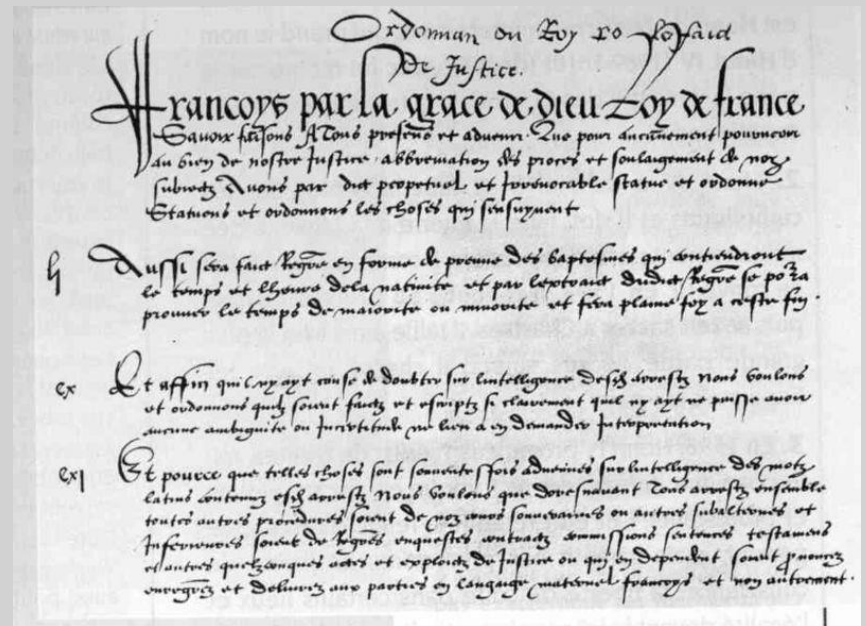 Ordonnan du Roy
De Justice.
Francoys par la grace de dieu Roy de france
Savoir faisons A Tous presens et advenir Que pour aucunement pourveoir
au bien de nostre Justice abbreviation des proces et soulaigement de noz
subiectz Avons par edict perpetuel et Irrevocable statue et ordonne
Statuons et ordonnons les choses qui sensuyvent.
lj Aussi sera faict Regre en forme de preuve des baptesmes qui contiendront
le temps et lheure dela nativite et par lextraict dudict Regre se pora
prouver le temps de maiorite ou minorite et fera plaine foy a ceste fin.
cx Et affin quil ny ayt cause de doubter sur lintelligence desdz arrestz Nous voulons
et ordonnons quilz soient faictz et escriptz si clairement quil ny ayt ne puisse avoir
aucune ambiguite ou Incertitude ne lieu a en demander Interpretation
cxj Et pource que telles choses sont souventeffois advenues sur lintelligence des motz
latins contenuz esdz arrestz Nous voulons que doresnavant Tous arrestz ensemble
toutes autres procedures soient de noz cours souveraines ou autres subalternes et
Inferieures soient de Regres enquestes contractz commissions sentences testamens
et autres quelzconques actes et exploictz de Justice ou qui en dependent soient prononcez
enregrez et delivrez aux parties en langage maternel francoys et non autrement.